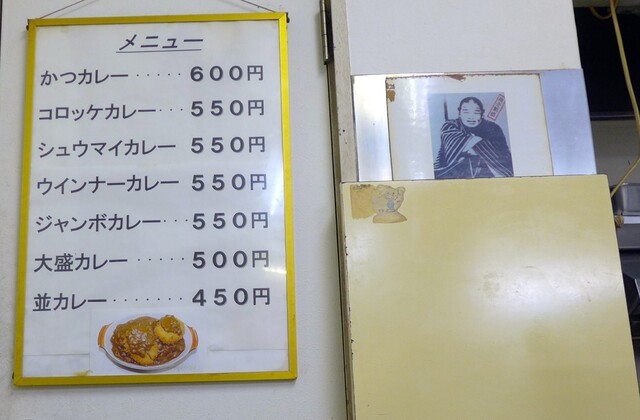 メニュー
かつカレー‥‥‥６００円
コロッケカレー‥‥５５０円
シュウマイカレー ５５０円
ウインナーカレー ５５０円
ジャンボカレー‥‥５５０円
大盛カレー‥‥‥５００円
並カレー‥‥‥‥４５０円